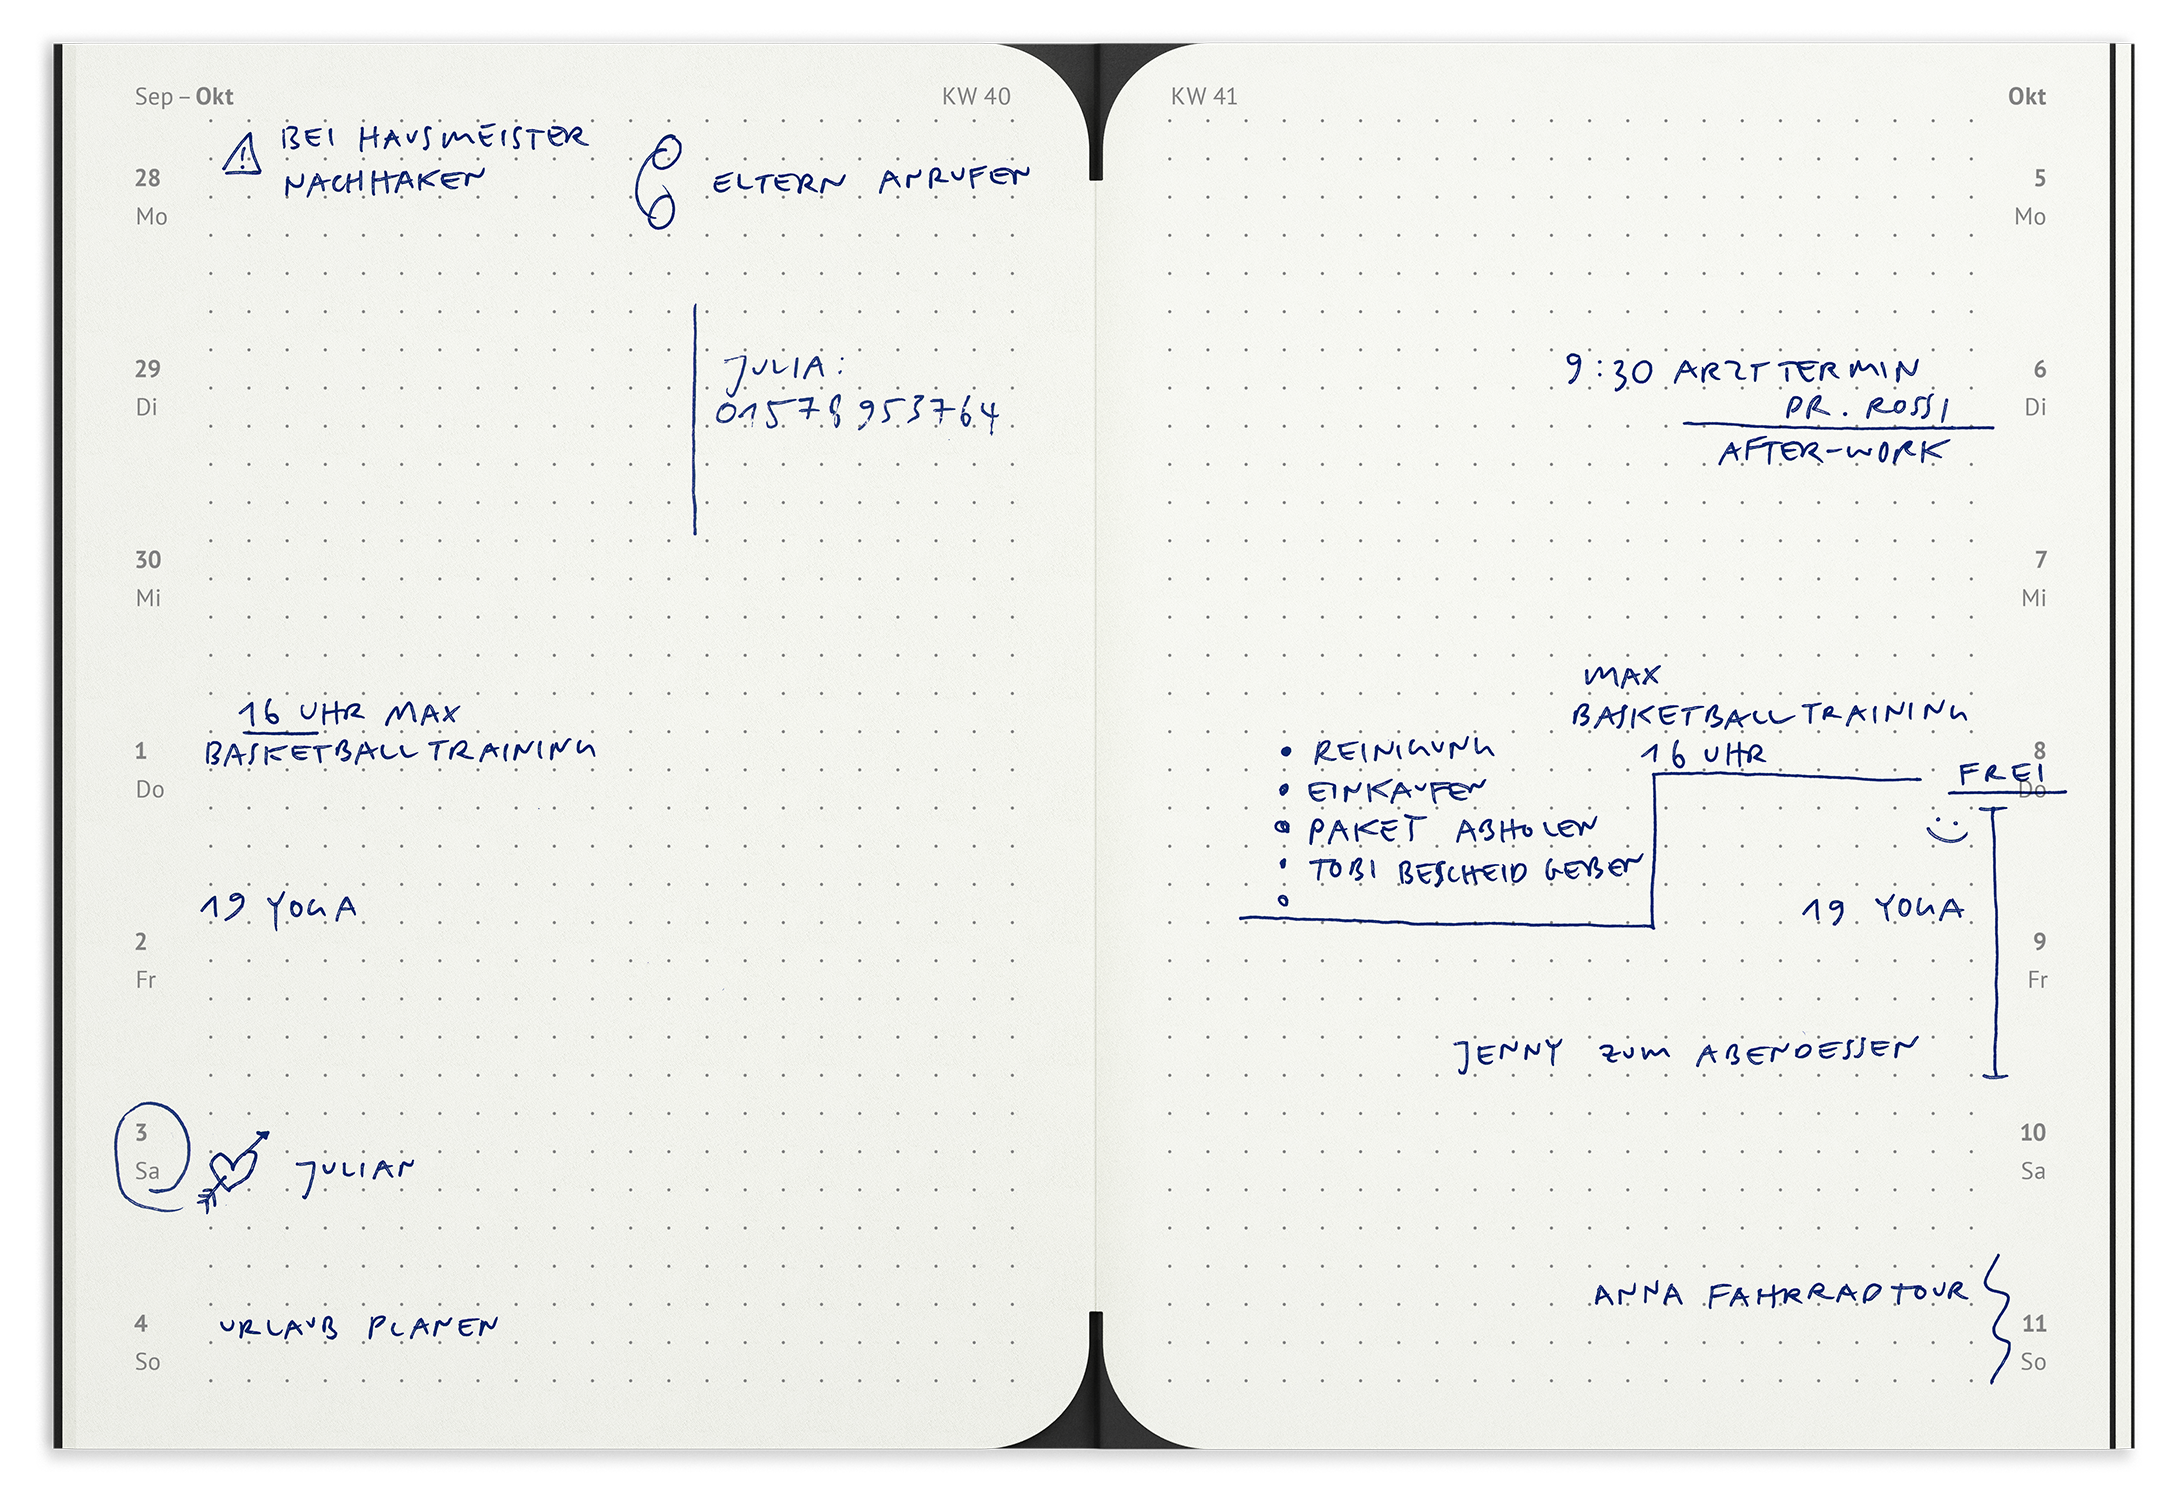 Sep – Okt
KW 40
BEI HAUSMEISTER
NACHHAKEN
ELTERN ANRUFEN
28
Mo
JULIA:
01578 953764
29
Di
30
Mi
16 UHR MAX
BASKETBALLTRAINING
1
Do
19 YOGA
2
Fr
3
Sa
JULIAN
4
So
URLAUB PLANEN
KW 41
Okt
5
Mo
9:30 ARZTTERMIN
DR. ROSSI
AFTER-WORK
6
Di
7
Mi
MAX
BASKETBALLTRAINING
16 UHR
8
Do
FREI
• REINIGUNG
• EINKAUFEN
• PAKET ABHOLEN
• TOBI BESCHEID GEBEN
19 YOGA
9
Fr
JENNY ZUM ABENDESSEN
10
Sa
ANNA FAHRRADTOUR
11
So